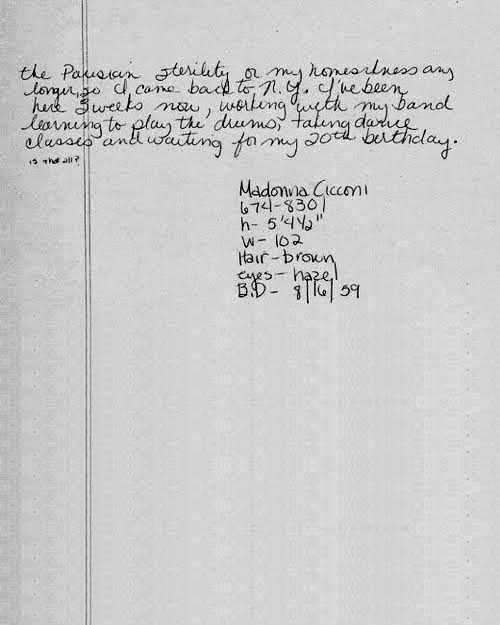 the Parisian sterility or my homesickness any
longer, so I came back to N.Y. I've been
here 3 weeks now, working with my band
learning to play the drums, taking dance
classes and waiting for my 20th birthday.
is that all?
Madonna Cicconi
674-8301
h- 5'4½"
w- 102
Hair-brown
eyes- hazel
B.D- 8/16/59